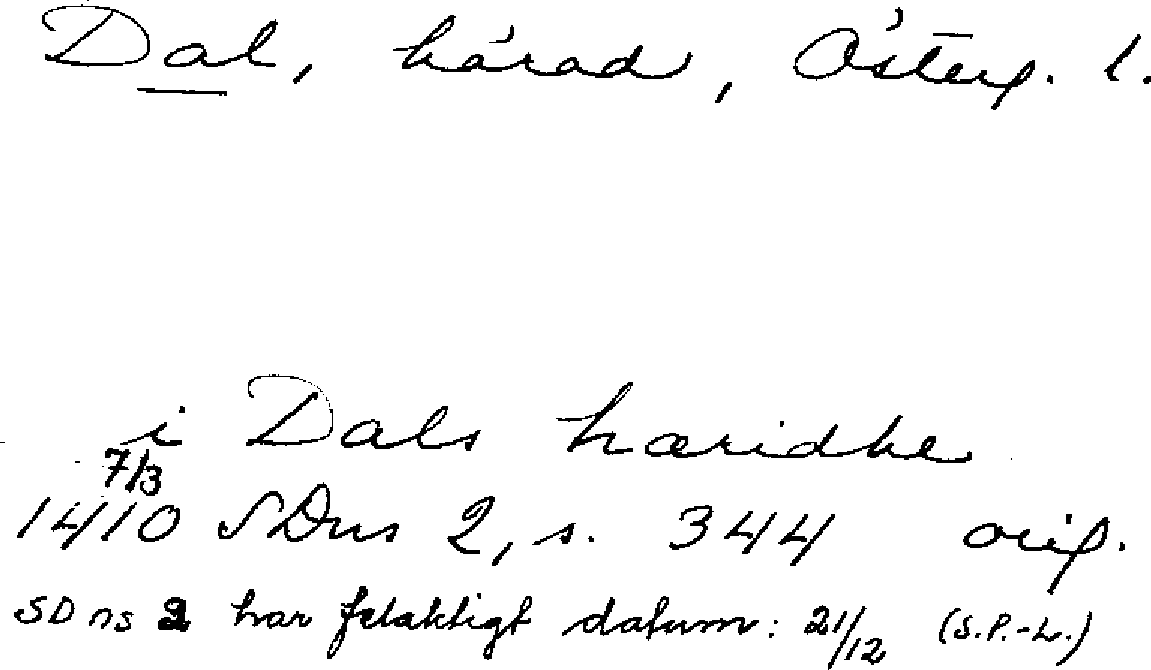 Dal, härad, Österg. l.
i Dals hæridhe
7/3
1410 SDns 2, s. 344 orig.
SD ns 2 har felaktigt datum: 21/12 (S.P.-L.)